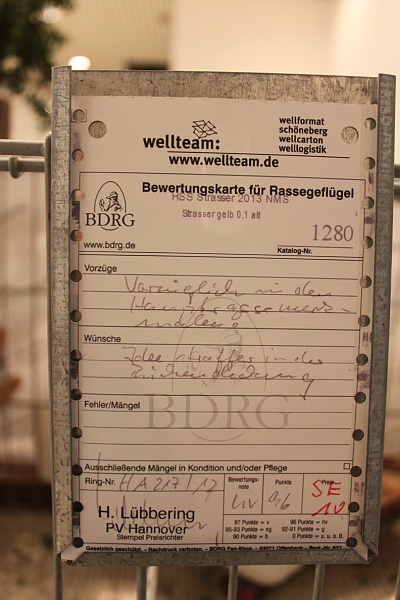 wellteam:
wellformat
schöneberg
wellcarton
welllogistik
www.wellteam.de
Bewertungskarte für Rassegeflügel
HSS Strasser 2013 NMS
Strasser gelb 0,1 alt
BDRG
www.bdrg.de
Katalog-Nr.
1280
Vorzüge
Vorzüglich in den
Hauptrassemerk-
malen
Wünsche
Idee straffer in der
Rückendeckung
Fehler/Mängel
BDRG
Ausschließende Mängel in Kondition und/oder Pflege
Ring-Nr. HA 217 / 12
Bewertungs-
note
hv
Punkte
96
Preis
SE
10
H. Lübbering
PV Hannover
Stempel Preisrichter
97 Punkte = v
96 Punkte = hv
95-93 Punkte = sg
92-91 Punkte = g
90 Punkte = b
0 Punkte = u. o. B.
Gesetzlich geschützt. - Nachdruck verboten. - BDRG Fan-Shop.